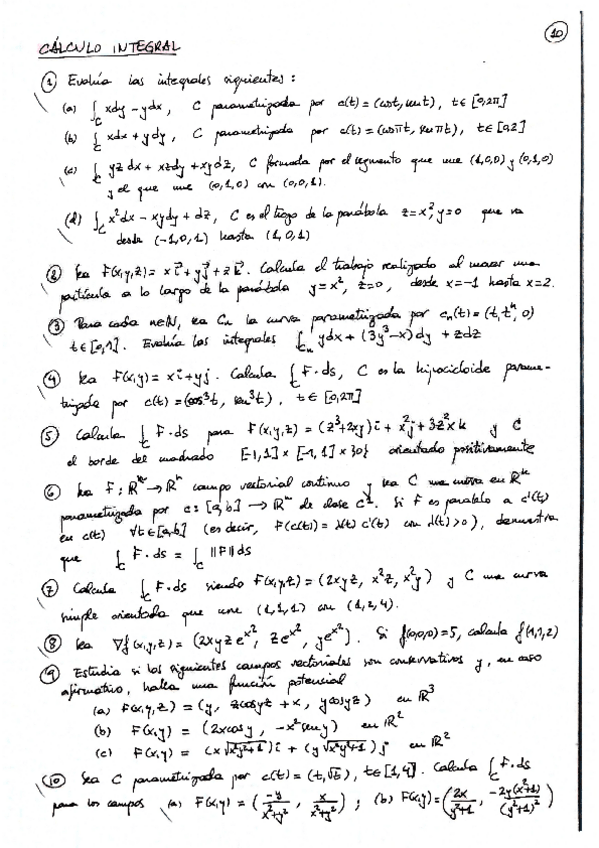 10
CÁLCULO INTEGRAL
① Evalúa las integrales siguientes:
(a) ∫_C xdy - ydx, C parametrizada por c(t) = (cost, sent), t∈[0,2π]
(b) ∫_C xdx + ydy, C parametrizada por c(t) = (cosπt, senπt), t∈[0,2]
(c) ∫_C yzdx + xzdy + xydz, C formada por el segmento que une (1,0,0) y (0,1,0)
y el que une (0,1,0) con (0,0,1).
(d) ∫_C x²dx - xydy + dz, C es el trozo de la parábola z=x², y=0 que va
desde (-1,0,1) hasta (1,0,1)
② Sea F(x,y,z) = x i⃗ + y j⃗ + z k⃗. Calcula el trabajo realizado al mover una
partícula a lo largo de la parábola y=x², z=0, desde x=-1 hasta x=2.
③ Para cada n∈ℕ, sea Cn la curva parametrizada por cn(t) = (t, tⁿ, 0)
t∈[0,1]. Evalúa las integrales ∫_Cn ydx + (3y³-x)dy + zdz
④ Sea F(x,y) = xi + yj. Calcula ∫_C F·ds, C es la hipocicloide parame-
trizada por c(t) = (cos³t, sen³t), t∈[0,2π]
⑤ Calcula ∫_C F·ds para F(x,y,z) = (z³+2xy)i + x²j + 3z²xk y C
el borde del cuadrado [-1,1]×[-1,1]×{0} orientado positivamente
⑥ Sea F: ℝⁿ → ℝⁿ campo vectorial continuo y sea C una curva en ℝⁿ
parametrizada por c: [a,b] → ℝⁿ de clase C¹. Si F es paralelo a c'(t)
en c(t) ∀t∈[a,b] (es decir, F(c(t)) = λ(t) c'(t) con λ(t)>0), demuestra
que ∫_C F·ds = ∫_C ||F|| ds
⑦ Calcula ∫_C F·ds siendo F(x,y,z) = (2xyz, x²z, x²y) y C una curva
simple orientada que une (1,1,1) con (1,2,4).
⑧ Sea ∇f(x,y,z) = (2xyze^x², ze^x², ye^x²). Si f(0,0,0)=5, calcula f(1,1,2)
⑨ Estudia si los siguientes campos vectoriales son conservativos y, en caso
afirmativo, halla una función potencial
(a) F(x,y,z) = (y, zcosyz + x, ycosyz) en ℝ³
(b) F(x,y) = (2xcosy, -x²seny) en ℝ²
(c) F(x,y) = (x√(x²y²+1))i + (y√(x²y²+1))j en ℝ²
⑩ Sea C parametrizada por c(t) = (t,√t), t∈[1,4]. Calcula ∫_C F·ds
para los campos (a) F(x,y) = (-y/(x²+y²), x/(x²+y²)); (b) F(x,y) = (2x/(y²+1), -2y(x²+1)/(y²+1)²)